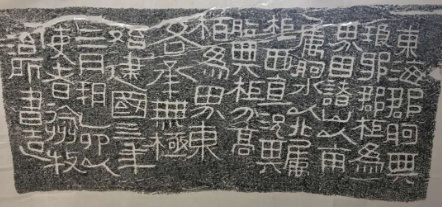 東海郡朐與
琅邪郡柜為
界因諸山以南
屬朐水以北屬
柜西直況其
朐與柜分高
桓為界東
各承無極
始建國四年
四月朔乙卯以
使者徐州牧
治所書造